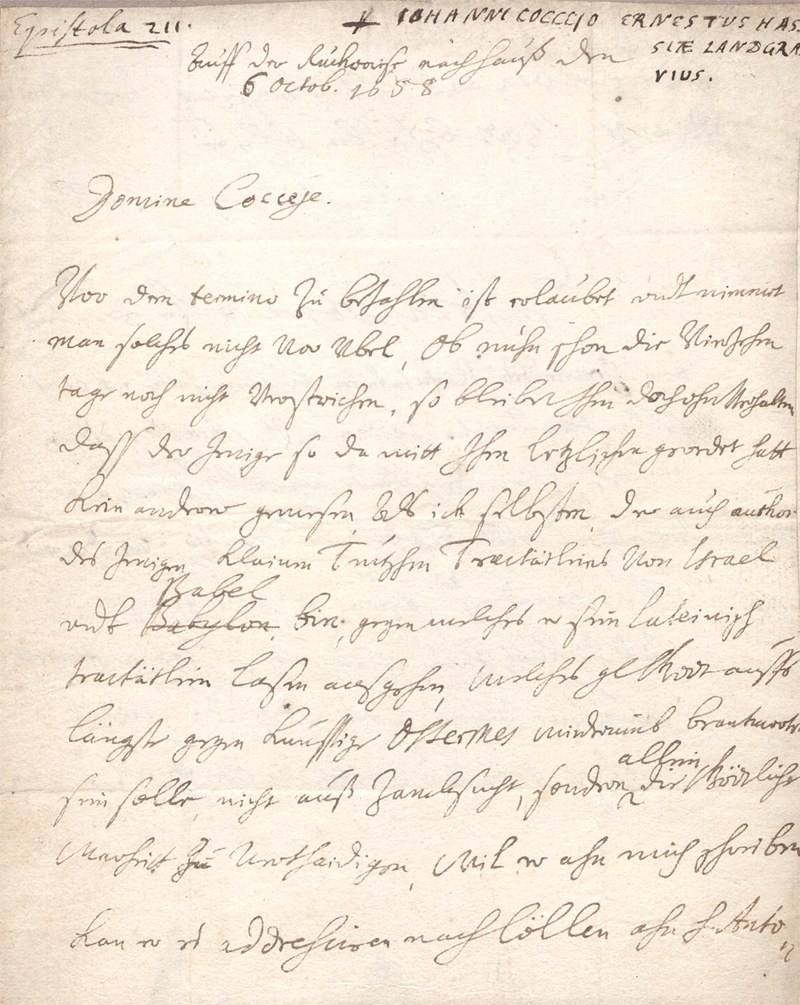 Epistola 211.
+ IOHANNI COCCEIO ERNESTUS HAS
SIÆ LANDGRA
VIUS.
Auff der Ruckraise nach hauß den
6 Octob. 1658
DomineOcceje.
Vor dem termino zu bezahlen ist erlaubet undt nimmet
man solches nicht vor Vbel, Ob nuhn schon die Vierzehen
tage noch nicht Verstrichen, so bleibet Ihm doch ohn Verhalten
dass der Jenige so da mitt Ihm letzlichen geredet hatt
kein anderer gewesen Als ich selbsten, der auch author
des Jenigen kleinen Teutschen Tractätleins Von Israel
Babel
undt Babylon, bin, gegen welches er sein lateinisch
tractätlein lasen ausgehen, Welches auffs
längste gegen künfftige Ostermes wiederumb beantwortet
allein
sein solle, nicht auß Zancksucht, sondern die Göttliche
Warheit Zu Vertheidigen, Wil er ahn mich schreiben
kan er es addresiren nach Cöllen ahn H. Anto